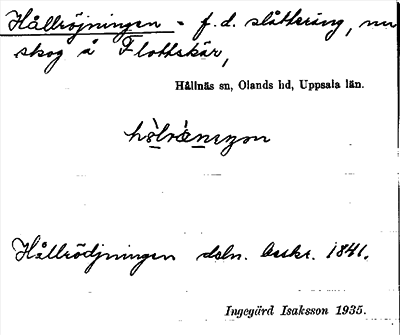 Hållröjningen - f.d. slåtteräng, nu
skog å Flottskär,
Hållnäs sn, Olands hd, Uppsala län.
Hållrödjningen dsln. beskr. 1841.
Ingegärd Isaksson 1935.